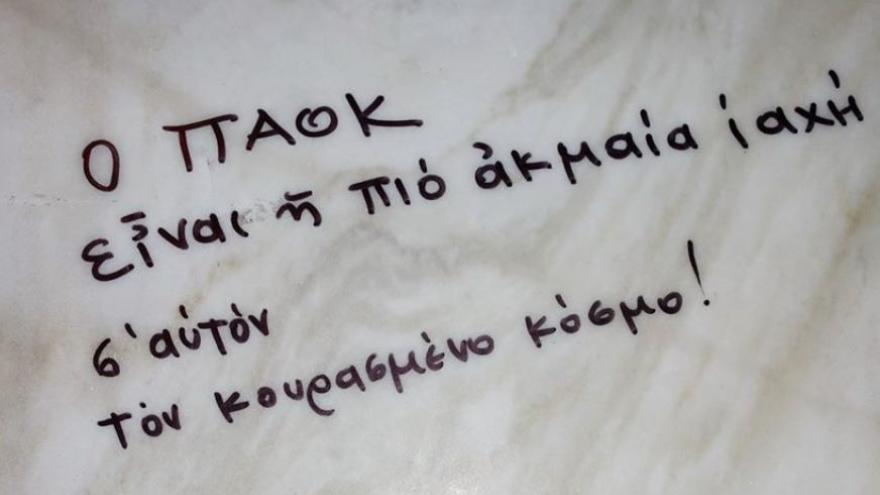 Ο ΠΑΟΚ
εἶναι ἢ πιό ἀκμαία ἰαχή
σ' αὐτὸν
τὸν κουρασμένο κόσμο!